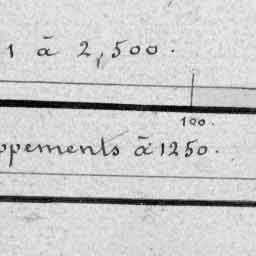 1 à 2,500.
100.
ppements à 1250.